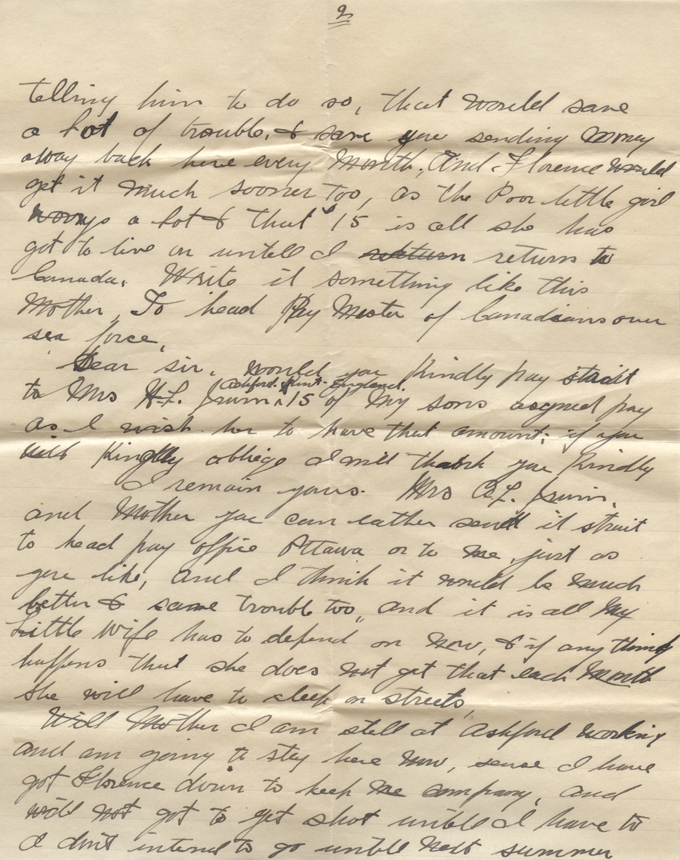 2
telling him to do so, that would save
a hot of trouble, & save you sending money
away back here every Month, And Florence would
get it much sooner too, as the Poor little girl
worrys a hot & that $15 is all she has
got to live on untell I return to
Canada. Write it something like this
Mother, To head Pay Master of Canadians over
sea force,
Dear sir. Would you Kindly pay strait
to Mrs H.L. Irwin Ashford Kent England. $15 of My sons asigned pay
as I wish her to have that amount; if you
will Kingly obliege I will thank you Kindly
I remain yours. Mrs C.L. Irwin.
and Mother you can eather send it strait
to head pay offise Ottawa or to me, just as
you like, and I think it would be much
better & same trouble too, and it is all My
Little Wife has to depend on now, & if any thing
happens that she does not get that each Month
she will have to sleep on streets,
Will Mother I am still at Ashford working
and am going to stay here now, sense I have
got Florence down to keep me company, and
will not got to get shot untill I have to
I don't intend to go untill next summer